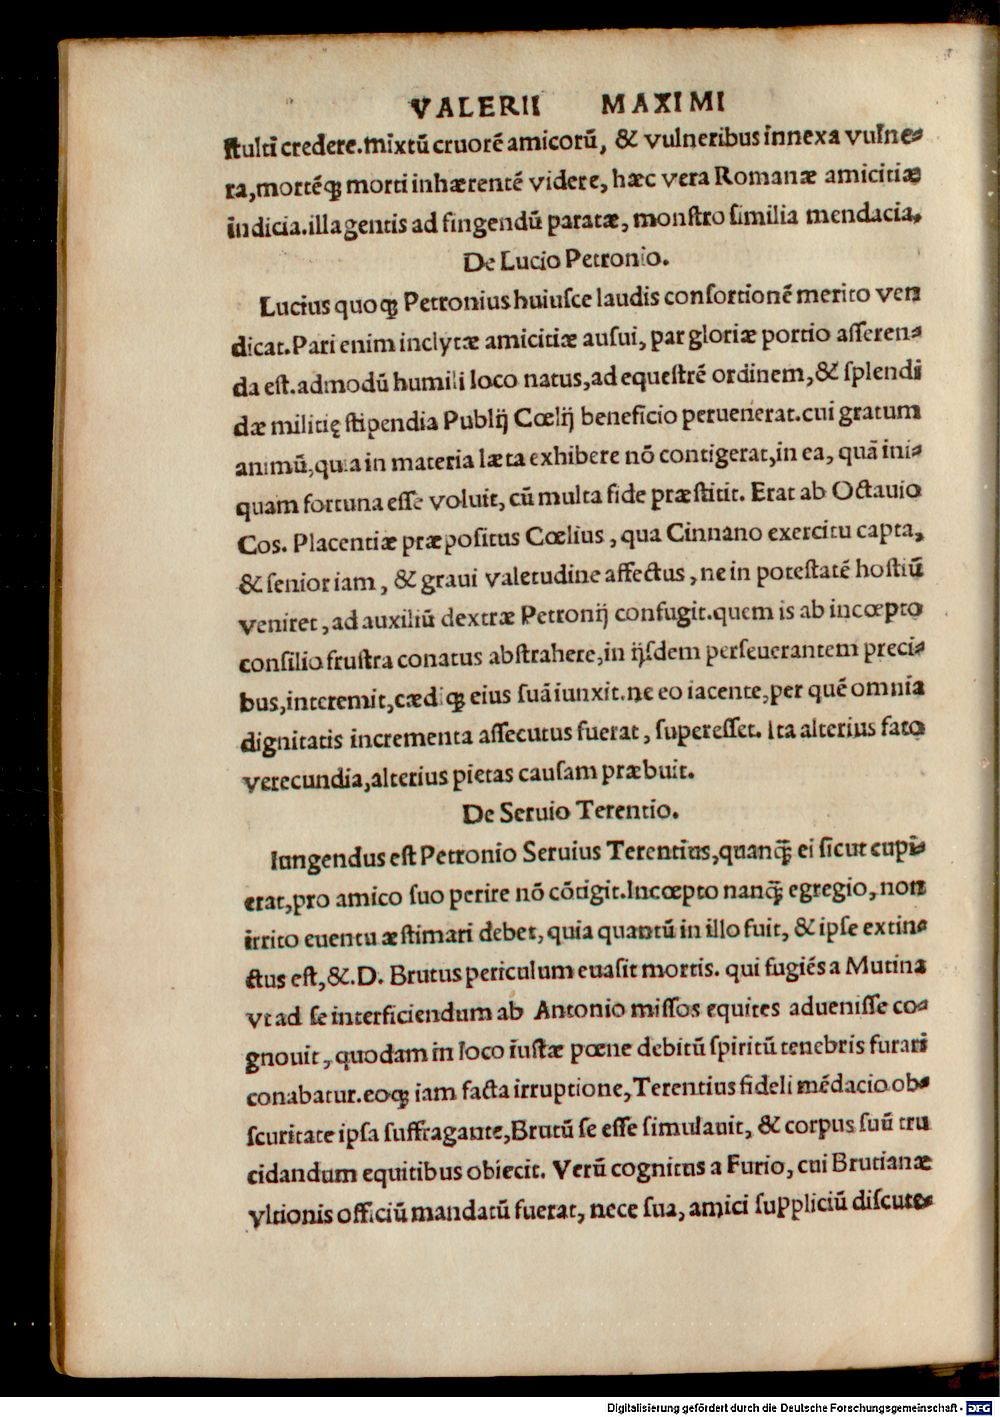 VALERII MAXIMI
ſtulti credere.mixtū cruorē amicorū, & vulneribus innexa vulne-
ra,mortéq; morti inhærentē videre, hæc vera Romanæ amicitiæ
indicia.illa gentis ad fingendū paratæ, monſtro ſimilia mendacia.
De Lucio Petronio.
Lucius quoq; Petronius huiuſce laudis conſortionē merito ven
dicat.Pari enim inclytæ amicitiæ auſui, par gloriæ portio aſſeren-
da eſt.admodū humili loco natus,ad equeſtrē ordinem,& ſplendi
dæ militię ſtipendia Publĳ Cœlĳ beneficio peruenerat.cui gratum
animū,quia in materia læta exhibere nō contigerat,in ea, quā ini-
quam fortuna eſſe voluit, cū multa fide præſtitit. Erat ab Octauio
Cos. Placentiæ præpoſitus Cœlius, qua Cinnano exercitu capta,
& ſenior iam, & graui valetudine affectus, ne in poteſtatē hoſtiū
veniret, ad auxiliū dextræ Petronĳ confugit.quem is ab incœpto
conſilio fruſtra conatus abſtrahere,in ĳſdem perſeuerantem preci-
bus,interemit,cædiq; eius ſuā iunxit.ne eo iacente,per quē omnia
dignitatis incrementa aſſecutus fuerat, ſupereſſet. Ita alterius fato
verecundia,alterius pietas cauſam præbuit.
De Seruio Terentio.
Iungendus eſt Petronio Seruius Terentius,quanq̄ ei ſicut cupi-
erat,pro amico ſuo perire nō cōtigit.Incœpto nanq; egregio, non
irrito euentu æſtimari debet, quia quantū in illo fuit, & ipſe extin-
ctus eſt,&.D. Brutus periculum euaſit mortis. qui fugiēs a Mutina
vt ad ſe interficiendum ab Antonio miſſos equites adueniſſe co-
gnouit, quodam in loco iuſtæ pœne debitū ſpiritū tenebris furari
conabatur.eoq; iam facta irruptione,Terentius fideli mēdacio ob-
ſcuritate ipſa ſuffragante,Brutū ſe eſſe ſimulauit, & corpus ſuū tru
cidandum equitibus obiecit. Verū cognitus a Furio, cui Brutianæ
vltionis officiū mandatū fuerat, nece ſua, amici ſuppliciū diſcute-
Digitalisierung gefördert durch die Deutsche Forschungsgemeinschaft - DFG